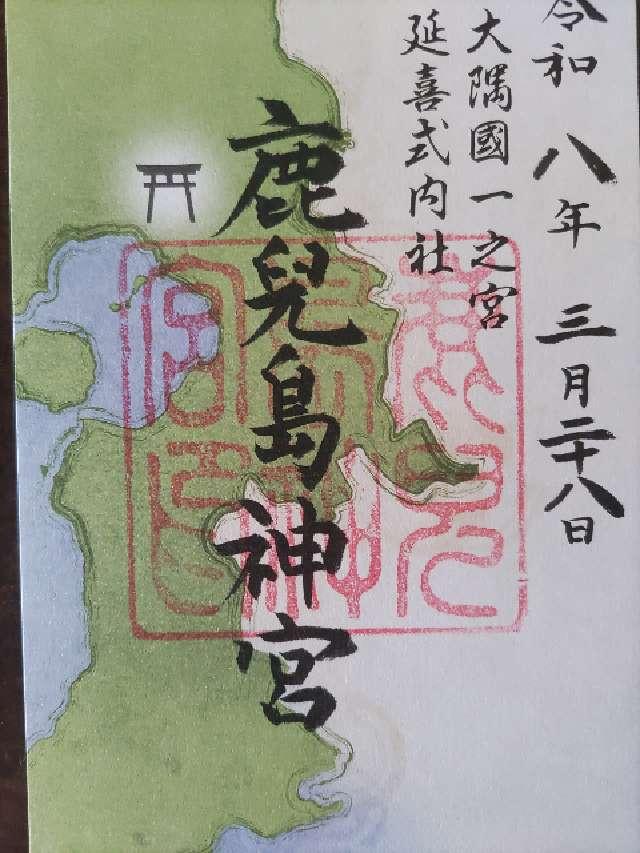 令和 八年 三月二十八日
大隅國一之宮
延喜式内社
鹿兒島神宮
鹿兒島神宮印